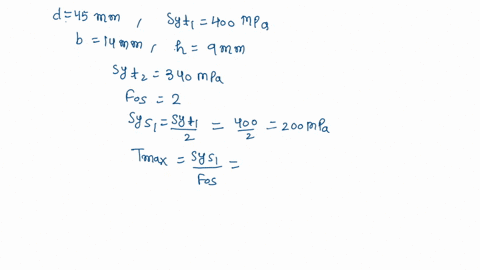 d = 45 mm , Syt1 = 400 MPa
b = 14 mm , h = 9 mm
Syt2 = 340 MPa
Fos = 2
Sys1 = Syt1/2 = 400/2 = 200 MPa
Tmax = Sys1/Fos =